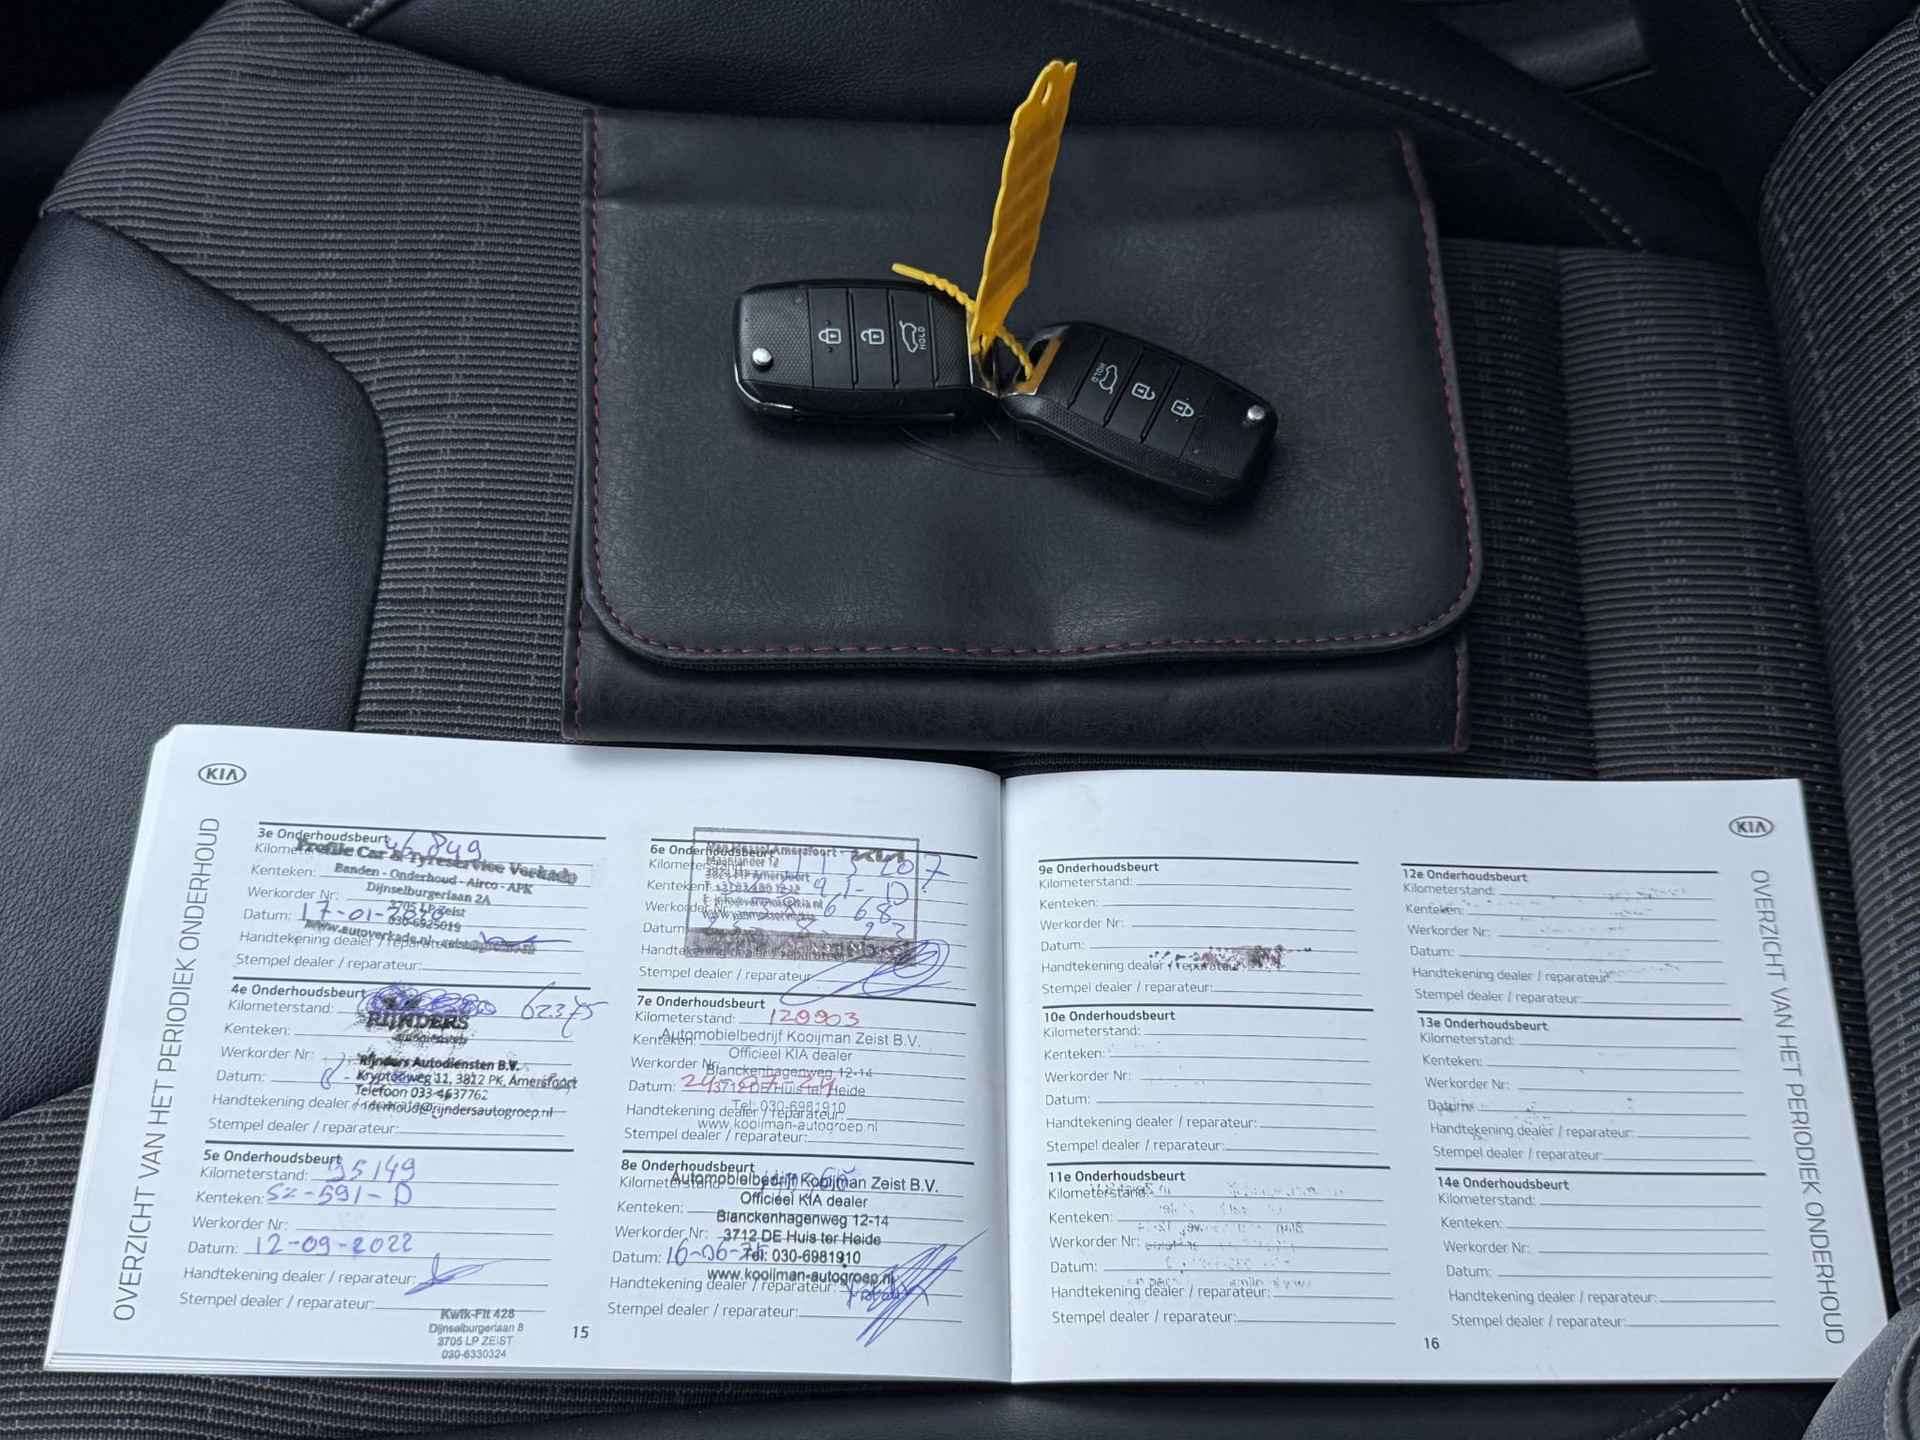 HOLD
HOLD
KIA
OVERZICHT VAN HET PERIODIEK ONDERHOUD
3e Onderhoudsbeurt
46849
Profile Car & Tyreservice Verkade
Kenteken:
Banden - Onderhoud - Airco - APK
Werkorder Nr:
Dijnselburgerlaan 2A
3705 LP Zeist
Datum: 17-01-2020
030-6925019
www.autoverkade.nl
Handtekening dealer / reparateur:
Stempel dealer / reparateur:
4e Onderhoudsbeurt
Kilometerstand: 62375
RIJNDERS
Kenteken:
Werkorder Nr:
Rijnders Autodiensten B.V.
Datum:
Kryptonweg 11, 3812 PK, Amersfoort
Telefoon 033-4637762
Handtekening dealer /
onderhoud@rijndersautogroep.nl
Stempel dealer / reparateur:
5e Onderhoudsbeurt
Kilometerstand: 95149
Kenteken: SZ-591-D
Werkorder Nr:
Datum: 12-09-2022
Handtekening dealer / reparateur:
Stempel dealer / reparateur:
Kwik-Fit 428
Dijnselburgerlaan 8
3705 LP ZEIST
030-6330324
15
6e Onderhoudsbeurt
Amersfoort
KIA
Kilometerstand
Kenteken
Werkorder Nr
Datum
Handtekening dealer / reparateur
Stempel dealer / reparateur:
7e Onderhoudsbeurt
Kilometerstand: 129903
Kenteken:
Automobielbedrijf Kooijman Zeist B.V.
Officieel KIA dealer
Werkorder Nr:
Blanckenhagenweg 12-14
Datum: 24-07-24
3712 DE Huis ter Heide
Tel: 030-6981910
Handtekening dealer / reparateur:
www.kooijman-autogroep.nl
Stempel dealer / reparateur:
8e Onderhoudsbeurt
Kilometerstand:
Automobielbedrijf Kooijman Zeist B.V.
Officieel KIA dealer
Kenteken:
Blanckenhagenweg 12-14
Werkorder Nr:
3712 DE Huis ter Heide
Datum: 16-06-25
Tel: 030-6981910
www.kooijman-autogroep.nl
Handtekening dealer / reparateur:
Stempel dealer / reparateur:
9e Onderhoudsbeurt
Kilometerstand:
Kenteken:
Werkorder Nr:
Datum:
Handtekening dealer / reparateur
Stempel dealer / reparateur:
10e Onderhoudsbeurt
Kilometerstand:
Kenteken:
Werkorder Nr:
Datum:
Handtekening dealer / reparateur:
Stempel dealer / reparateur:
11e Onderhoudsbeurt
Kilometerstand:
Kenteken:
Werkorder Nr:
Datum:
Handtekening dealer / reparateur:
Stempel dealer / reparateur:
16
KIA
12e Onderhoudsbeurt
Kilometerstand:
Kenteken:
Werkorder Nr:
Datum:
Handtekening dealer / reparateur:
Stempel dealer / reparateur:
13e Onderhoudsbeurt
Kilometerstand:
Kenteken:
Werkorder Nr:
Datum:
Handtekening dealer / reparateur:
Stempel dealer / reparateur:
14e Onderhoudsbeurt
Kilometerstand:
Kenteken:
Werkorder Nr:
Datum:
Handtekening dealer / reparateur:
Stempel dealer / reparateur:
OVERZICHT VAN HET PERIODIEK ONDERHOUD